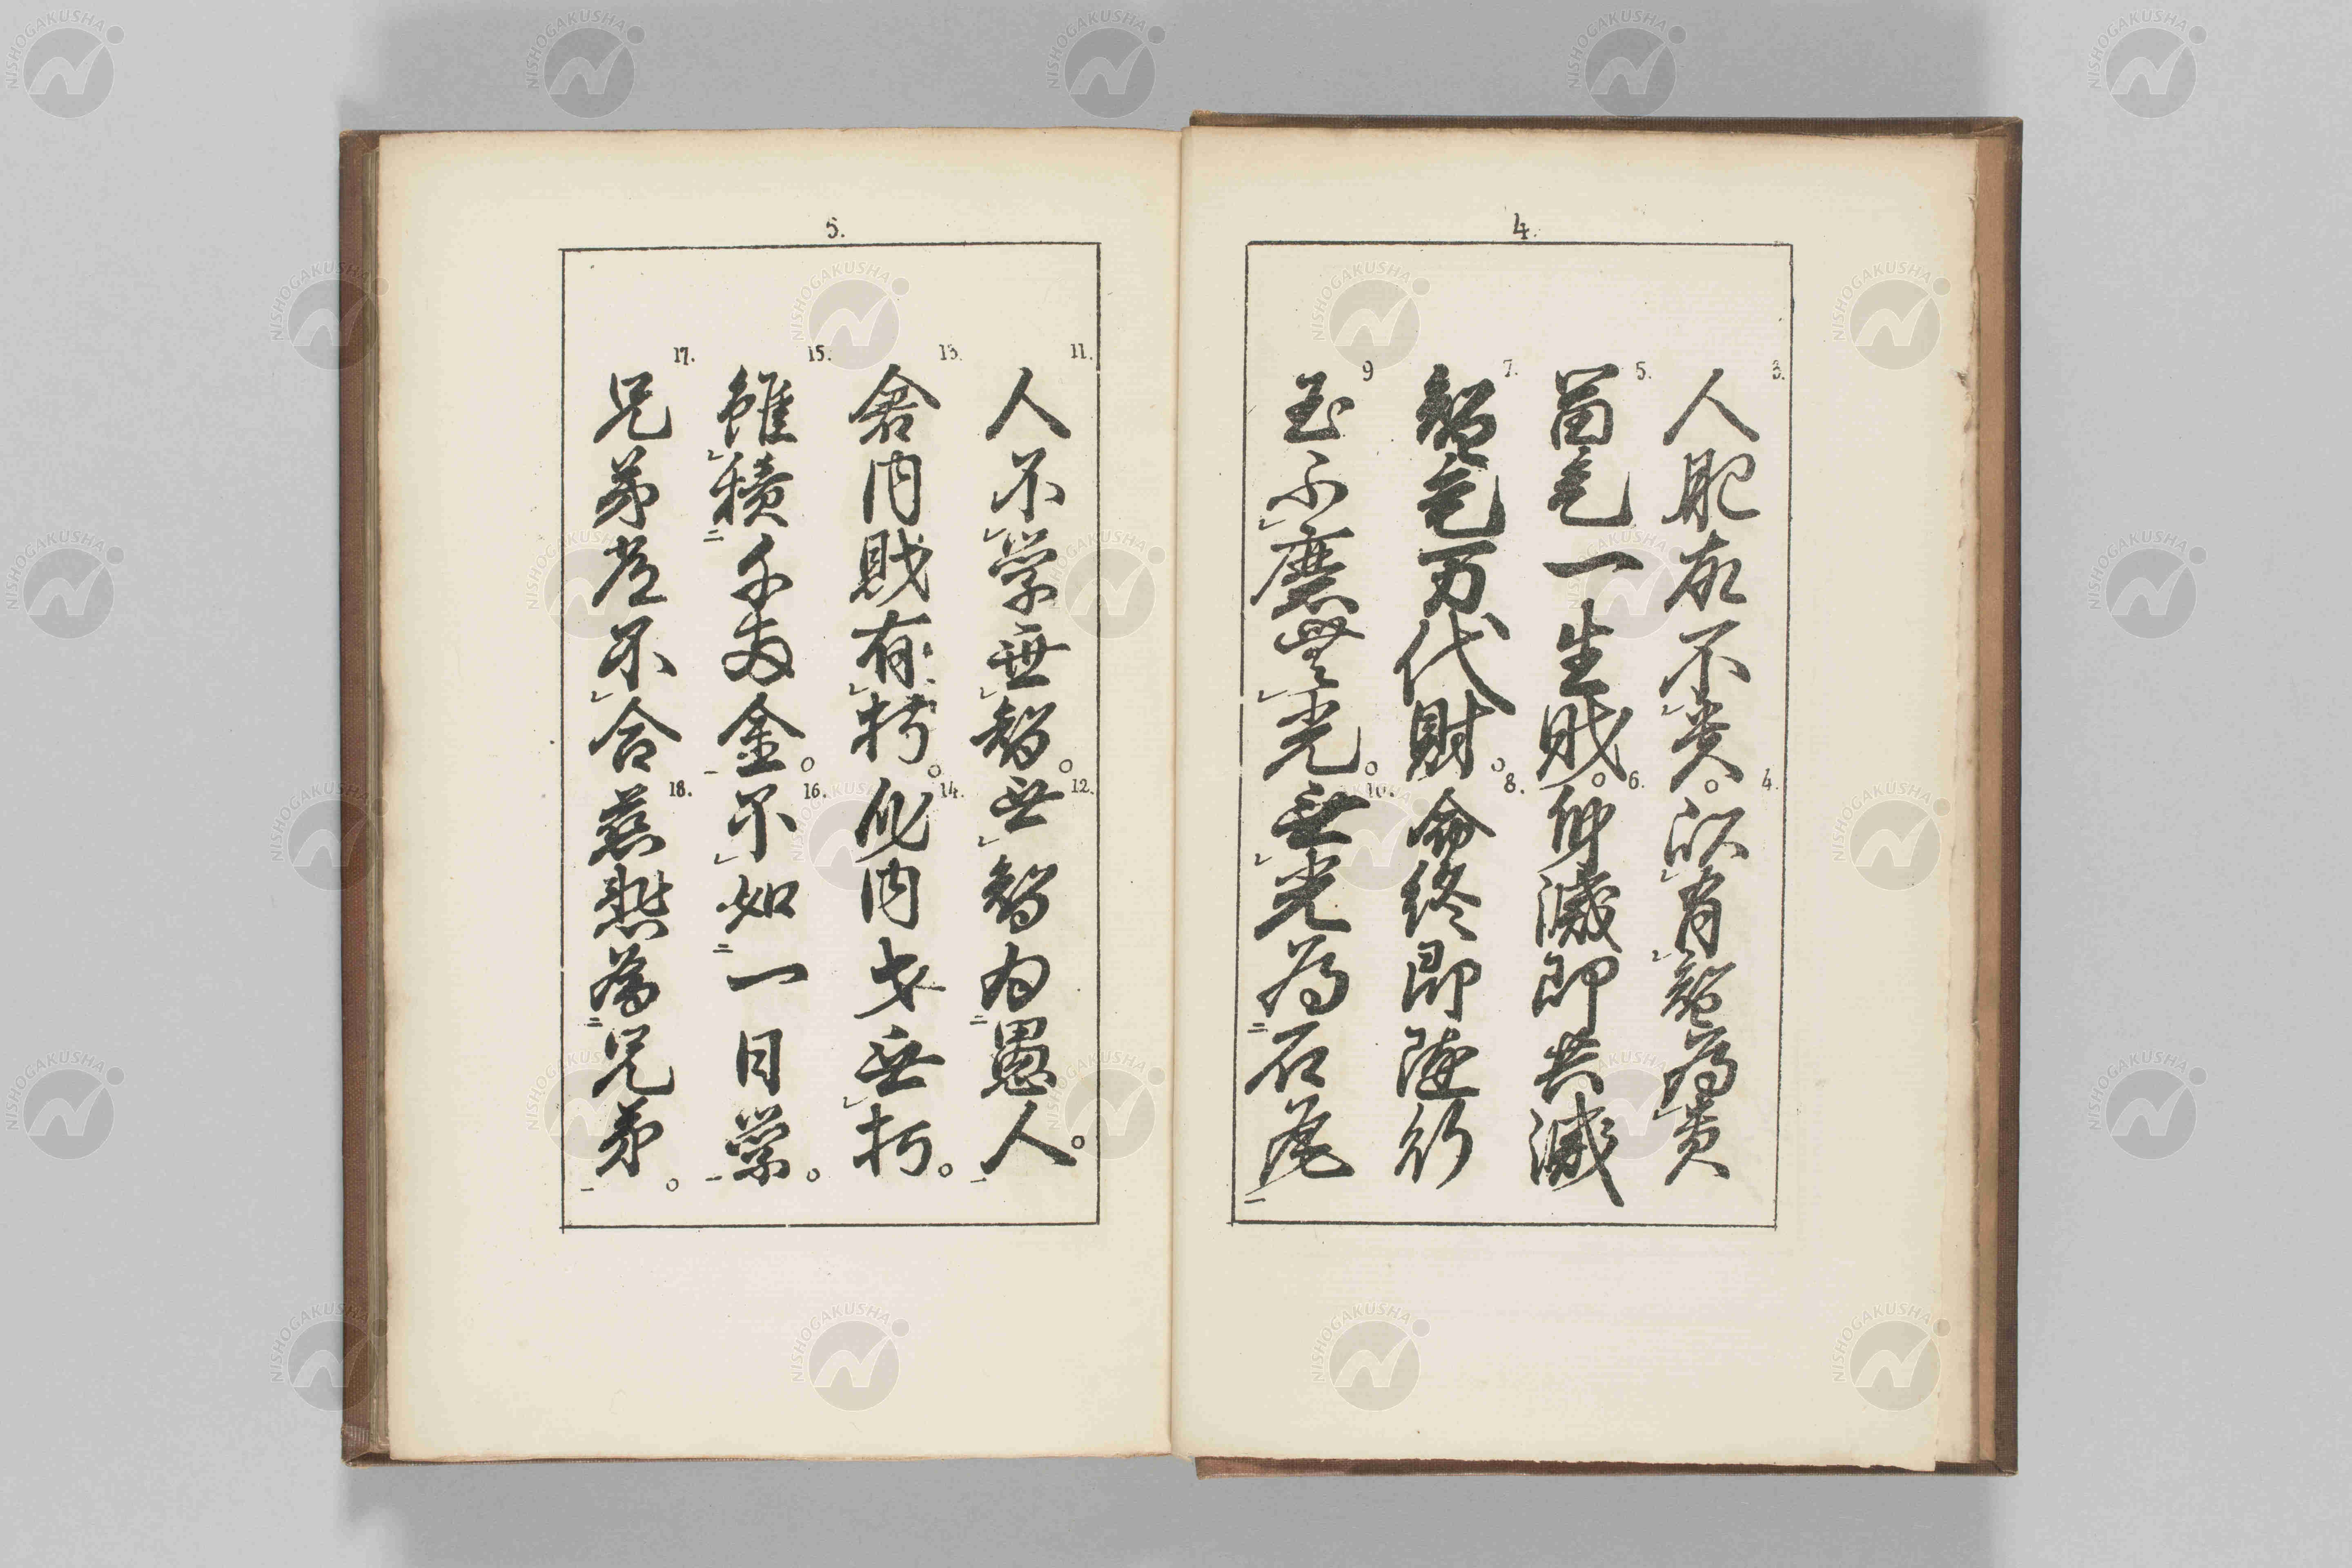 4.
3. 人肥故不貴。4. 以有智為貴
5. 冨是一生財。6. 身滅即共滅
7. 智是万代財。8. 命終即随行
9 玉不磨無光。10. 無光為石瓦
5.
11. 人不学無智。12. 無智為愚人。
13. 倉内財有朽。14. 身内才無朽。
15. 雖積千両金。16. 不如一日学。
17. 兄弟常不合 18. 慈悲為兄弟。
NISHOGAKUSHA